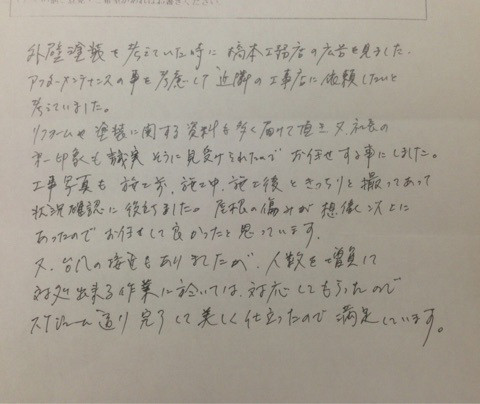 外壁塗装を考えていた時に橋本工務店の広告を見ました。
アフターメンテナンスの事を考慮して近隣の工事店に依頼したいと
考えていました。
リフォームや塗装に関する資料も多く届けて頂き又、社長の
第一印象も誠実そうに見受けられたのでお任せする事にしました。
工事写真も施工前、施工中、施工後ときっちりと撮ってあって
状況確認に役立ちました。屋根の傷みが想像以上に
あったのでお任せして良かったと思っています。
又、台風の接近もありましたが、人数を増員して
対処出来る作業に於いては、対応してもらったので
スケジュール通り完了して美しく仕立ったので満足しています。